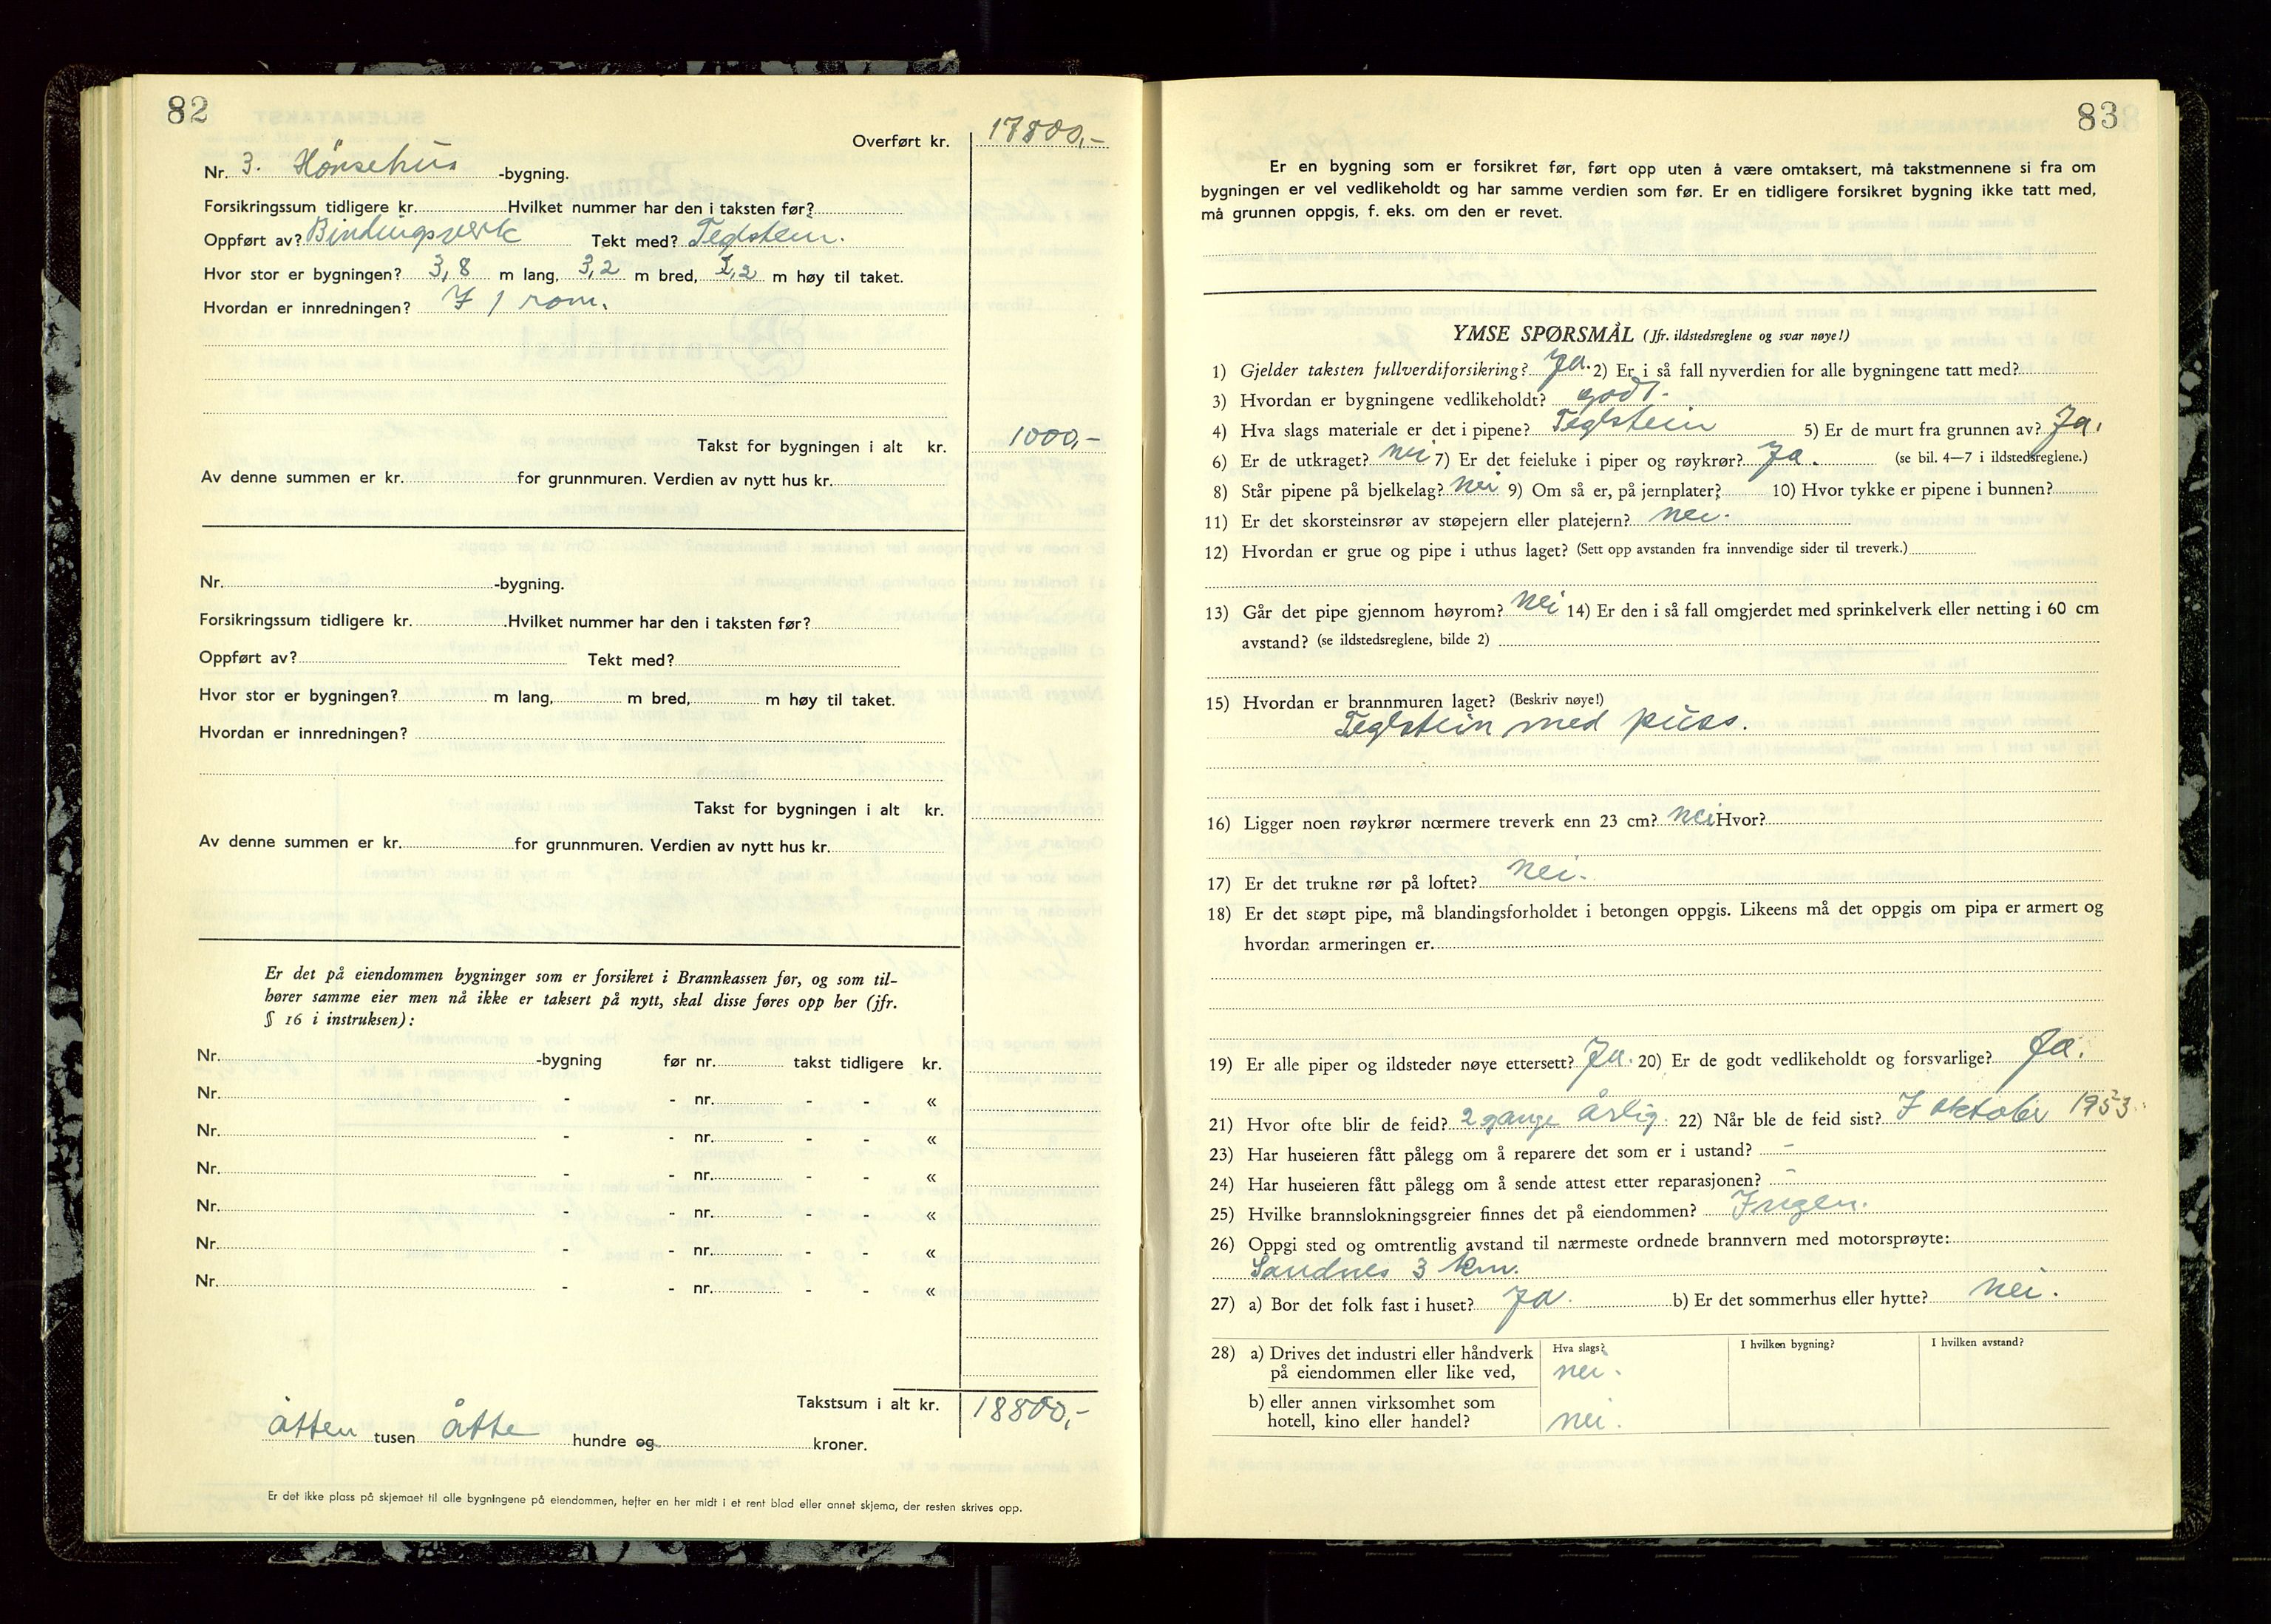 82
Overført kr. 17800,-
Nr. 3. Hönsehus -bygning.
Forsikringssum tidligere kr. Hvilket nummer har den i taksten før?
Oppført av? Bindingsverk Tekt med? Teglstein.
Hvor stor er bygningen? 3,8 m lang, 3,2 m bred, 2,2 m høy til taket.
Hvordan er innredningen? I 1 rom.
Takst for bygningen i alt kr. 1000,-
Av denne summen er kr. for grunnmuren. Verdien av nytt hus kr.
Nr. -bygning.
Forsikringssum tidligere kr. Hvilket nummer har den i taksten før?
Oppført av? Tekt med?
Hvor stor er bygningen? m lang, m bred, m høy til taket.
Hvordan er innredningen?
Takst for bygningen i alt kr.
Av denne summen er kr. for grunnmuren. Verdien av nytt hus kr.
Er det på eiendommen bygninger som er forsikret i Brannkassen før, og som til-
hører samme eier men nå ikke er taksert på nytt, skal disse føres opp her (jfr.
§ 16 i instruksen):
Nr. -bygning før nr. takst tidligere kr.
Nr. - - nr. - - «
Nr. - - nr. - - «
Nr. - - nr. - - «
Nr. - - nr. - - «
Nr. - - nr. - - «
Nr. - - nr. - - «
Takstsum i alt kr. 18800,-
åtten tusen åtte hundre og kroner.
Er det ikke plass på skjemaet til alle bygningene på eiendommen, hefter en her midt i et rent blad eller annet skjema, der resten skrives opp.
83
Er en bygning som er forsikret før, ført opp uten å være omtaksert, må takstmennene si fra om
bygningen er vel vedlikeholdt og har samme verdien som før. Er en tidligere forsikret bygning ikke tatt med,
må grunnen oppgis, f. eks. om den er revet.
YMSE SPØRSMÅL (Jfr. ildstedsreglene og svar nøye!)
1) Gjelder taksten fullverdiforsikring? Ja. 2) Er i så fall nyverdien for alle bygningene tatt med?
3) Hvordan er bygningene vedlikeholdt? godt.
4) Hva slags materiale er det i pipene? Teglstein 5) Er de murt fra grunnen av? Ja.
6) Er de utkraget? nei 7) Er det feieluke i piper og røykrør? Ja. (se bil. 4—7 i ildstedsreglene.)
8) Står pipene på bjelkelag? nei 9) Om så er, på jernplater? 10) Hvor tykke er pipene i bunnen?
11) Er det skorsteinsrør av støpejern eller platejern? nei.
12) Hvordan er grue og pipe i uthus laget? (Sett opp avstanden fra innvendige sider til treverk.)
13) Går det pipe gjennom høyrom? nei 14) Er den i så fall omgjerdet med sprinkelverk eller netting i 60 cm
avstand? (se ildstedsreglene, bilde 2)
15) Hvordan er brannmuren laget? (Beskriv nøye!)
Teglstein med puss.
16) Ligger noen røykrør nærmere treverk enn 23 cm? nei Hvor?
17) Er det trukne rør på loftet? nei.
18) Er det støpt pipe, må blandingsforholdet i betongen oppgis. Likeens må det oppgis om pipa er armert og
hvordan armeringen er.
19) Er alle piper og ildsteder nøye ettersett? Ja. 20) Er de godt vedlikeholdt og forsvarlige? Ja.
21) Hvor ofte blir de feid? 2 gange årlig. 22) Når ble de feid sist? I oktober 1953.
23) Har huseieren fått pålegg om å reparere det som er i ustand? -
24) Har huseieren fått pålegg om å sende attest etter reparasjonen? -
25) Hvilke brannslokningsgreier finnes det på eiendommen? Ingen.
26) Oppgi sted og omtrentlig avstand til nærmeste ordnede brannvern med motorsprøyte:
Sandnes 3 km.
27) a) Bor det folk fast i huset? Ja. b) Er det sommerhus eller hytte? nei.
28) a) Drives det industri eller håndverk Hva slags? I hvilken bygning? I hvilken avstand?
på eiendommen eller like ved, nei.
b) eller annen virksomhet som
hotell, kino eller handel? nei.